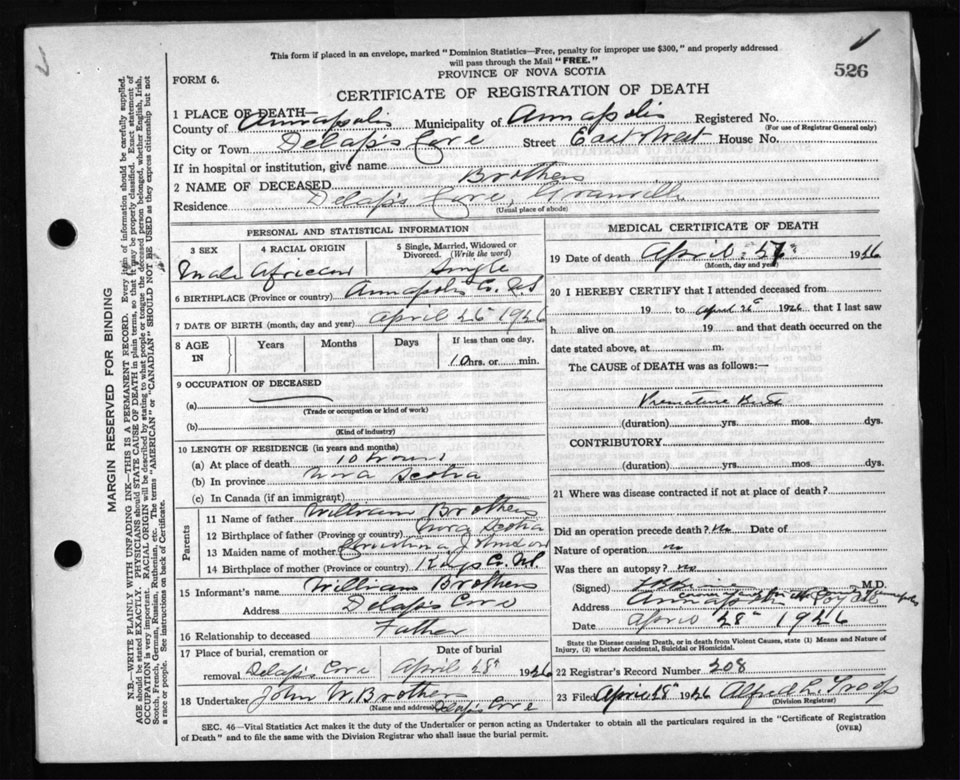 This form if placed in an envelope, marked "Dominion Statistics—Free, penalty for improper use $300," and properly addressed
will pass through the Mail "FREE."
526
FORM 6.
PROVINCE OF NOVA SCOTIA
CERTIFICATE OF REGISTRATION OF DEATH
1 PLACE OF DEATH—
County of Annapolis Municipality of Annapolis Registered No.
(For use of Registrar General only)
City or Town Delap's Cove Street East West House No.
If in hospital or institution, give name
2 NAME OF DECEASED Brothers
Residence Delap's Cove, Granville
(Usual place of abode)
PERSONAL AND STATISTICAL INFORMATION
3 SEX 4 RACIAL ORIGIN 5 Single, Married, Widowed or Divorced. (Write the word)
Male African Single
6 BIRTHPLACE (Province or country) Annapolis Co. N.S
7 DATE OF BIRTH (month, day and year) April 26th 1926
8 AGE IN Years Months Days If less than one day,
10 hrs. or min.
9 OCCUPATION OF DECEASED
(a)
(Trade or occupation or kind of work)
(b)
(Kind of industry)
10 LENGTH OF RESIDENCE (in years and months)
(a) At place of death 10 hours
(b) In province Nova Scotia
(c) In Canada (if an immigrant)
Parents
11 Name of father William Brothers
12 Birthplace of father (Province or country) Nova Scotia
13 Maiden name of mother Christina
14 Birthplace of mother (Province or country) Kings Co.
15 Informant's name William Brothers
Address Delap's Cove
16 Relationship to deceased Father
17 Place of burial, cremation or removal Date of burial
Delap's Cove April 28th 1926
18 Undertaker John W. Brothers
(Name and address) Delap's Cove
MEDICAL CERTIFICATE OF DEATH
19 Date of death April 1926
(Month, day and year)
20 I HEREBY CERTIFY that I attended deceased from
19 to April 26th 1926, that I last saw
h alive on 19 and that death occurred on the
date stated above, at m.
The CAUSE OF DEATH was as follows:—
Premature Birth
(duration) yrs. mos. dys.
CONTRIBUTORY
(duration) yrs. mos. dys.
21 Where was disease contracted if not at place of death?
Did an operation precede death? No Date of
Nature of operation no
Was there an autopsy? No
(Signed) M.D.
Address Annapolis
Date April 28th 1926
State the Disease causing Death, or in death from Violent Causes, state (1) Means and Nature of
Injury, (2) whether Accidental, Suicidal or Homicidal.
22 Registrar's Record Number 208
23 Filed April 28th 1926 Alfred L. Troop
(Division Registrar)
SEC. 46—Vital Statistics Act makes it the duty of the Undertaker or person acting as Undertaker to obtain all the particulars required in the "Certificate of Registration
of Death" and to file the same with the Division Registrar who shall issue the burial permit.
(OVER)
MARGIN RESERVED FOR BINDING
N.B.—WRITE PLAINLY WITH UNFADING INK—THIS IS A PERMANENT RECORD. Every item of information should be carefully supplied.
AGE should be stated EXACTLY. PHYSICIANS should STATE CAUSE OF DEATH in plain terms, so that it may be properly classified. Exact statement of
OCCUPATION is very important. RACIAL ORIGIN will be described by stating to what people or tongue the deceased person belonged, whether English, Irish,
Scotch, French, German, Russian, Ruthenian, etc. The terms "AMERICAN" or "CANADIAN" SHOULD NOT BE USED as they express citizenship but not
a race or people. See instructions on back of Certificate.